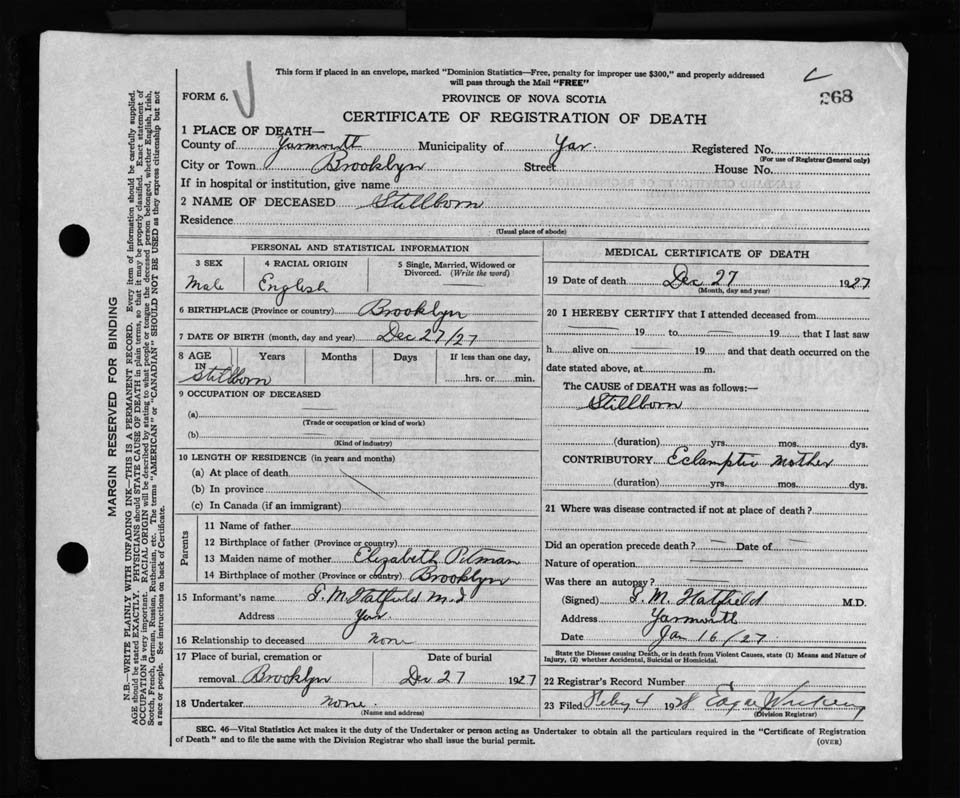 This form if placed in an envelope, marked "Dominion Statistics—Free, penalty for improper use $300," and properly addressed
will pass through the Mail "FREE"
FORM 6.
PROVINCE OF NOVA SCOTIA
268
CERTIFICATE OF REGISTRATION OF DEATH
1 PLACE OF DEATH—
County of Yarmouth Municipality of Yar. Registered No.
(For use of Registrar General only)
City or Town Brooklyn Street House No.
If in hospital or institution, give name
2 NAME OF DECEASED Stillborn
Residence
(Usual place of abode)
PERSONAL AND STATISTICAL INFORMATION
3 SEX 4 RACIAL ORIGIN 5 Single, Married, Widowed or
Divorced. (Write the word)
Male English
6 BIRTHPLACE (Province or country) Brooklyn
7 DATE OF BIRTH (month, day and year) Dec 27/27
8 AGE Years Months Days If less than one day,
IN
Stillborn hrs. or min.
9 OCCUPATION OF DECEASED
(a)
(Trade or occupation or kind of work)
(b)
(Kind of industry)
10 LENGTH OF RESIDENCE (in years and months)
(a) At place of death
(b) In province
(c) In Canada (if an immigrant)
Parents
11 Name of father
12 Birthplace of father (Province or country)
13 Maiden name of mother Elizabeth Pitman
14 Birthplace of mother (Province or country) Brooklyn
15 Informant's name I. M. Hatfield M.D
Address Yar
16 Relationship to deceased None
17 Place of burial, cremation or Date of burial
removal Brooklyn Dec 27 1927
18 Undertaker none
(Name and address)
MEDICAL CERTIFICATE OF DEATH
19 Date of death Dec 27 1927
(Month, day and year)
20 I HEREBY CERTIFY that I attended deceased from
19 to 19 that I last saw
h alive on 19 and that death occurred on the
date stated above, at m.
The CAUSE of DEATH was as follows:—
Stillborn
(duration) yrs. mos. dys.
CONTRIBUTORY Eclamptic Mother
(duration) yrs. mos. dys.
21 Where was disease contracted if not at place of death?
Did an operation precede death? Date of
Nature of operation
Was there an autopsy?
(Signed) I. M. Hatfield M.D.
Address Yarmouth
Date Jan 16/27
State the Disease causing Death, or in death from Violent Causes, state (1) Means and Nature of
Injury, (2) whether Accidental, Suicidal or Homicidal.
22 Registrar's Record Number
23 Filed Feby 4 1928 Edgar
(Division Registrar)
SEC. 46—Vital Statistics Act makes it the duty of the Undertaker or person acting as Undertaker to obtain all the particulars required in the "Certificate of Registration
of Death" and to file the same with the Division Registrar who shall issue the burial permit.
(OVER)
MARGIN RESERVED FOR BINDING
N.B.—WRITE PLAINLY WITH UNFADING INK—THIS IS A PERMANENT RECORD. Every item of information should be carefully supplied.
AGE should be stated EXACTLY. PHYSICIANS should STATE CAUSE OF DEATH in plain terms, so that it may be properly classified. Exact statement of
OCCUPATION is very important. RACIAL ORIGIN will be described by stating to what people or tongue the deceased person belonged, whether English, Irish,
Scotch, French, German, Russian, Ruthenian, etc. The terms "AMERICAN" or "CANADIAN" SHOULD NOT BE USED as they express citizenship but not
a race or people. See instructions on back of Certificate.